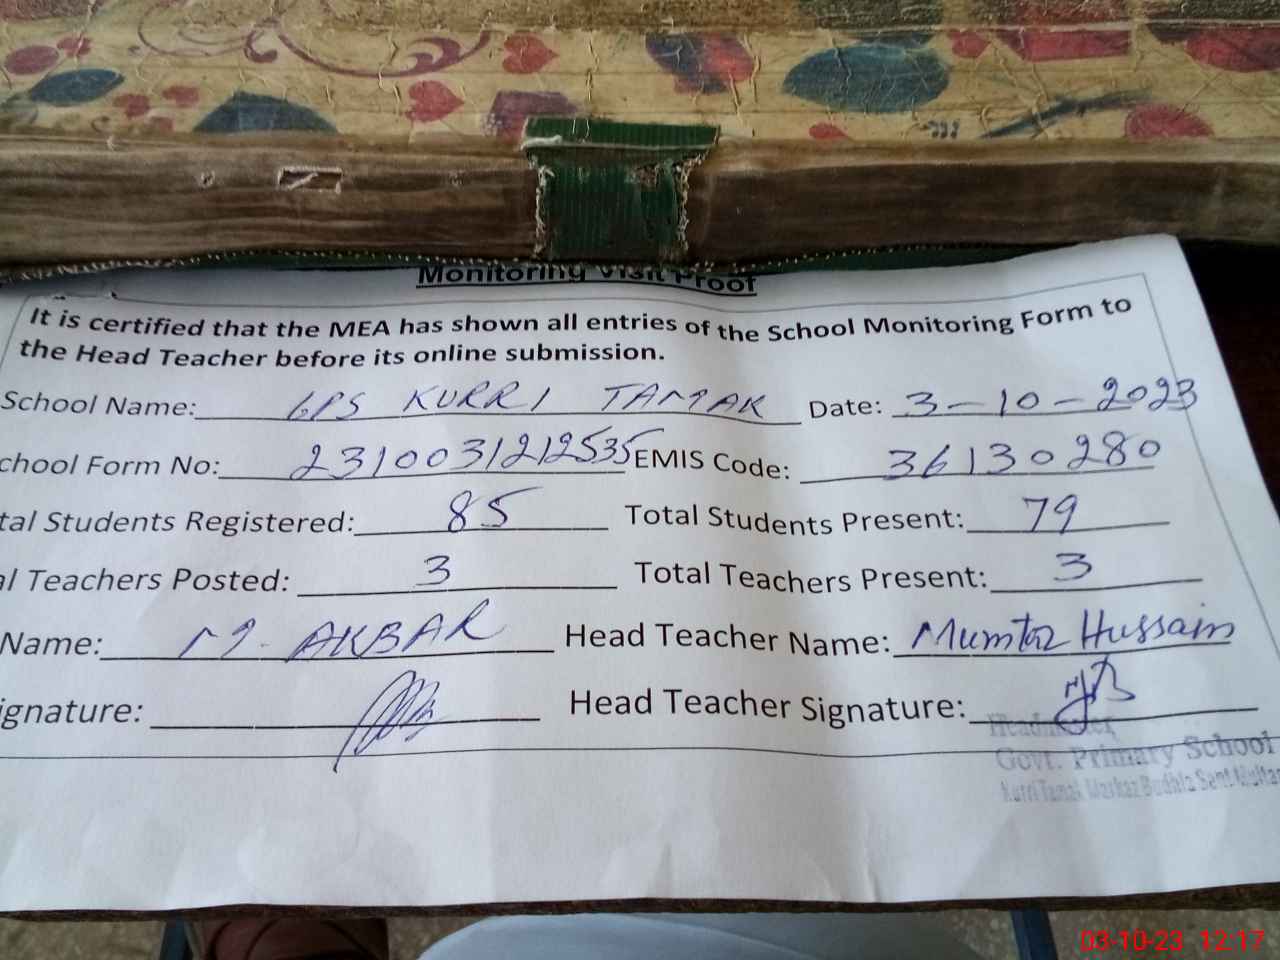 Monitoring Visit Proof
It is certified that the MEA has shown all entries of the School Monitoring Form to
the Head Teacher before its online submission.
School Name: GPS KURRI TAMAK Date: 3-10-2023
chool Form No: 2310031212535 EMIS Code: 36130280
tal Students Registered: 85 Total Students Present: 79
al Teachers Posted: 3 Total Teachers Present: 3
Name: M. AKBAR Head Teacher Name: Mumtaz Hussain
ignature: Head Teacher Signature:
Headmaster
Govt. Primary School
Kurri Tamak Markaz Budhla Sant Multan
03-10-23 12:17